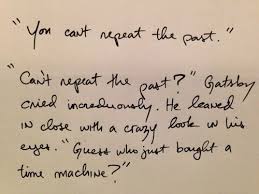 "You can't repeat the past."
"Can't repeat the past?" Gatsby
cried incredulously. He leaned
in close with a crazy look in his
eyes. "Guess who just bought a
time machine?"